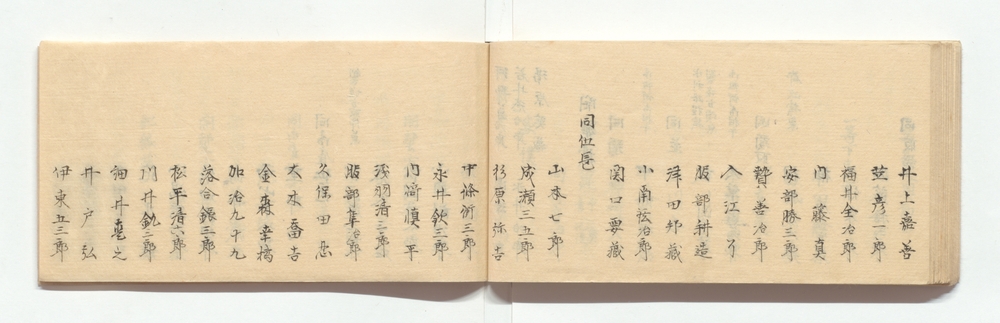 井上嘉善
芝彦一郎
福井全治郎
門藤真
安部勝三郎
贄善治郎
入江
服部耕造
津田邦蔵
小南弦治郎
関口要蔵
同伍長
山本七郎
成瀬三五郎
杉原弥吉
中條術三郎
永井欽三郎
門奈慎平
浅羽清三郎
服部隼治郎
久保田忠
大木喬吉
金森幸橘
加治九十九
落合銀三郎
松平清六郎
川井釚三郎
細井竜之
井戸弘
伊東五三郎